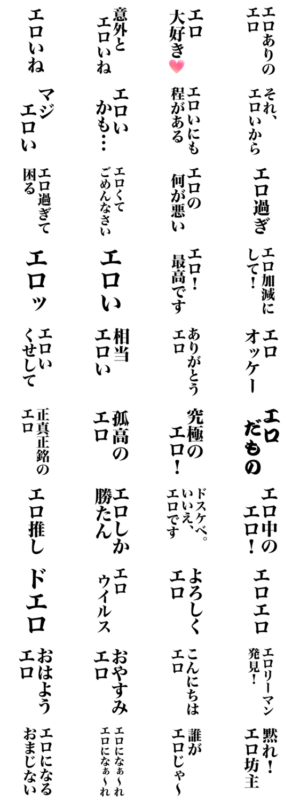 エロいね
意外と
エロいね
エロ
大好き
エロありの
エロ
マジ
エロい
エロい
かも…
エロいにも
程がある
それ、
エロいから
エロ過ぎて
困る
エロくて
ごめんなさい
エロの
何が悪い
エロ過ぎ
エロッ
エロい
エロ！
最高です
エロ加減に
して！
エロい
くせして
相当
エロい
ありがとう
エロ
エロ
オッケー
正真正銘の
エロ
孤高の
エロ
究極の
エロ！
エロ
だもの
エロ推し
エロしか
勝たん
ドスケベ。
いいえ、
エロです
エロ中の
エロ！
ドエロ
エロ
ウイルス
よろしく
エロ
エロエロ
おはよう
エロ
おやすみ
エロ
こんにちは
エロ
エロリーマン
発見！
エロになる
おまじない
エロになぁ〜れ
エロになぁ〜れ
誰が
エロじゃ〜
黙れ！
エロ坊主